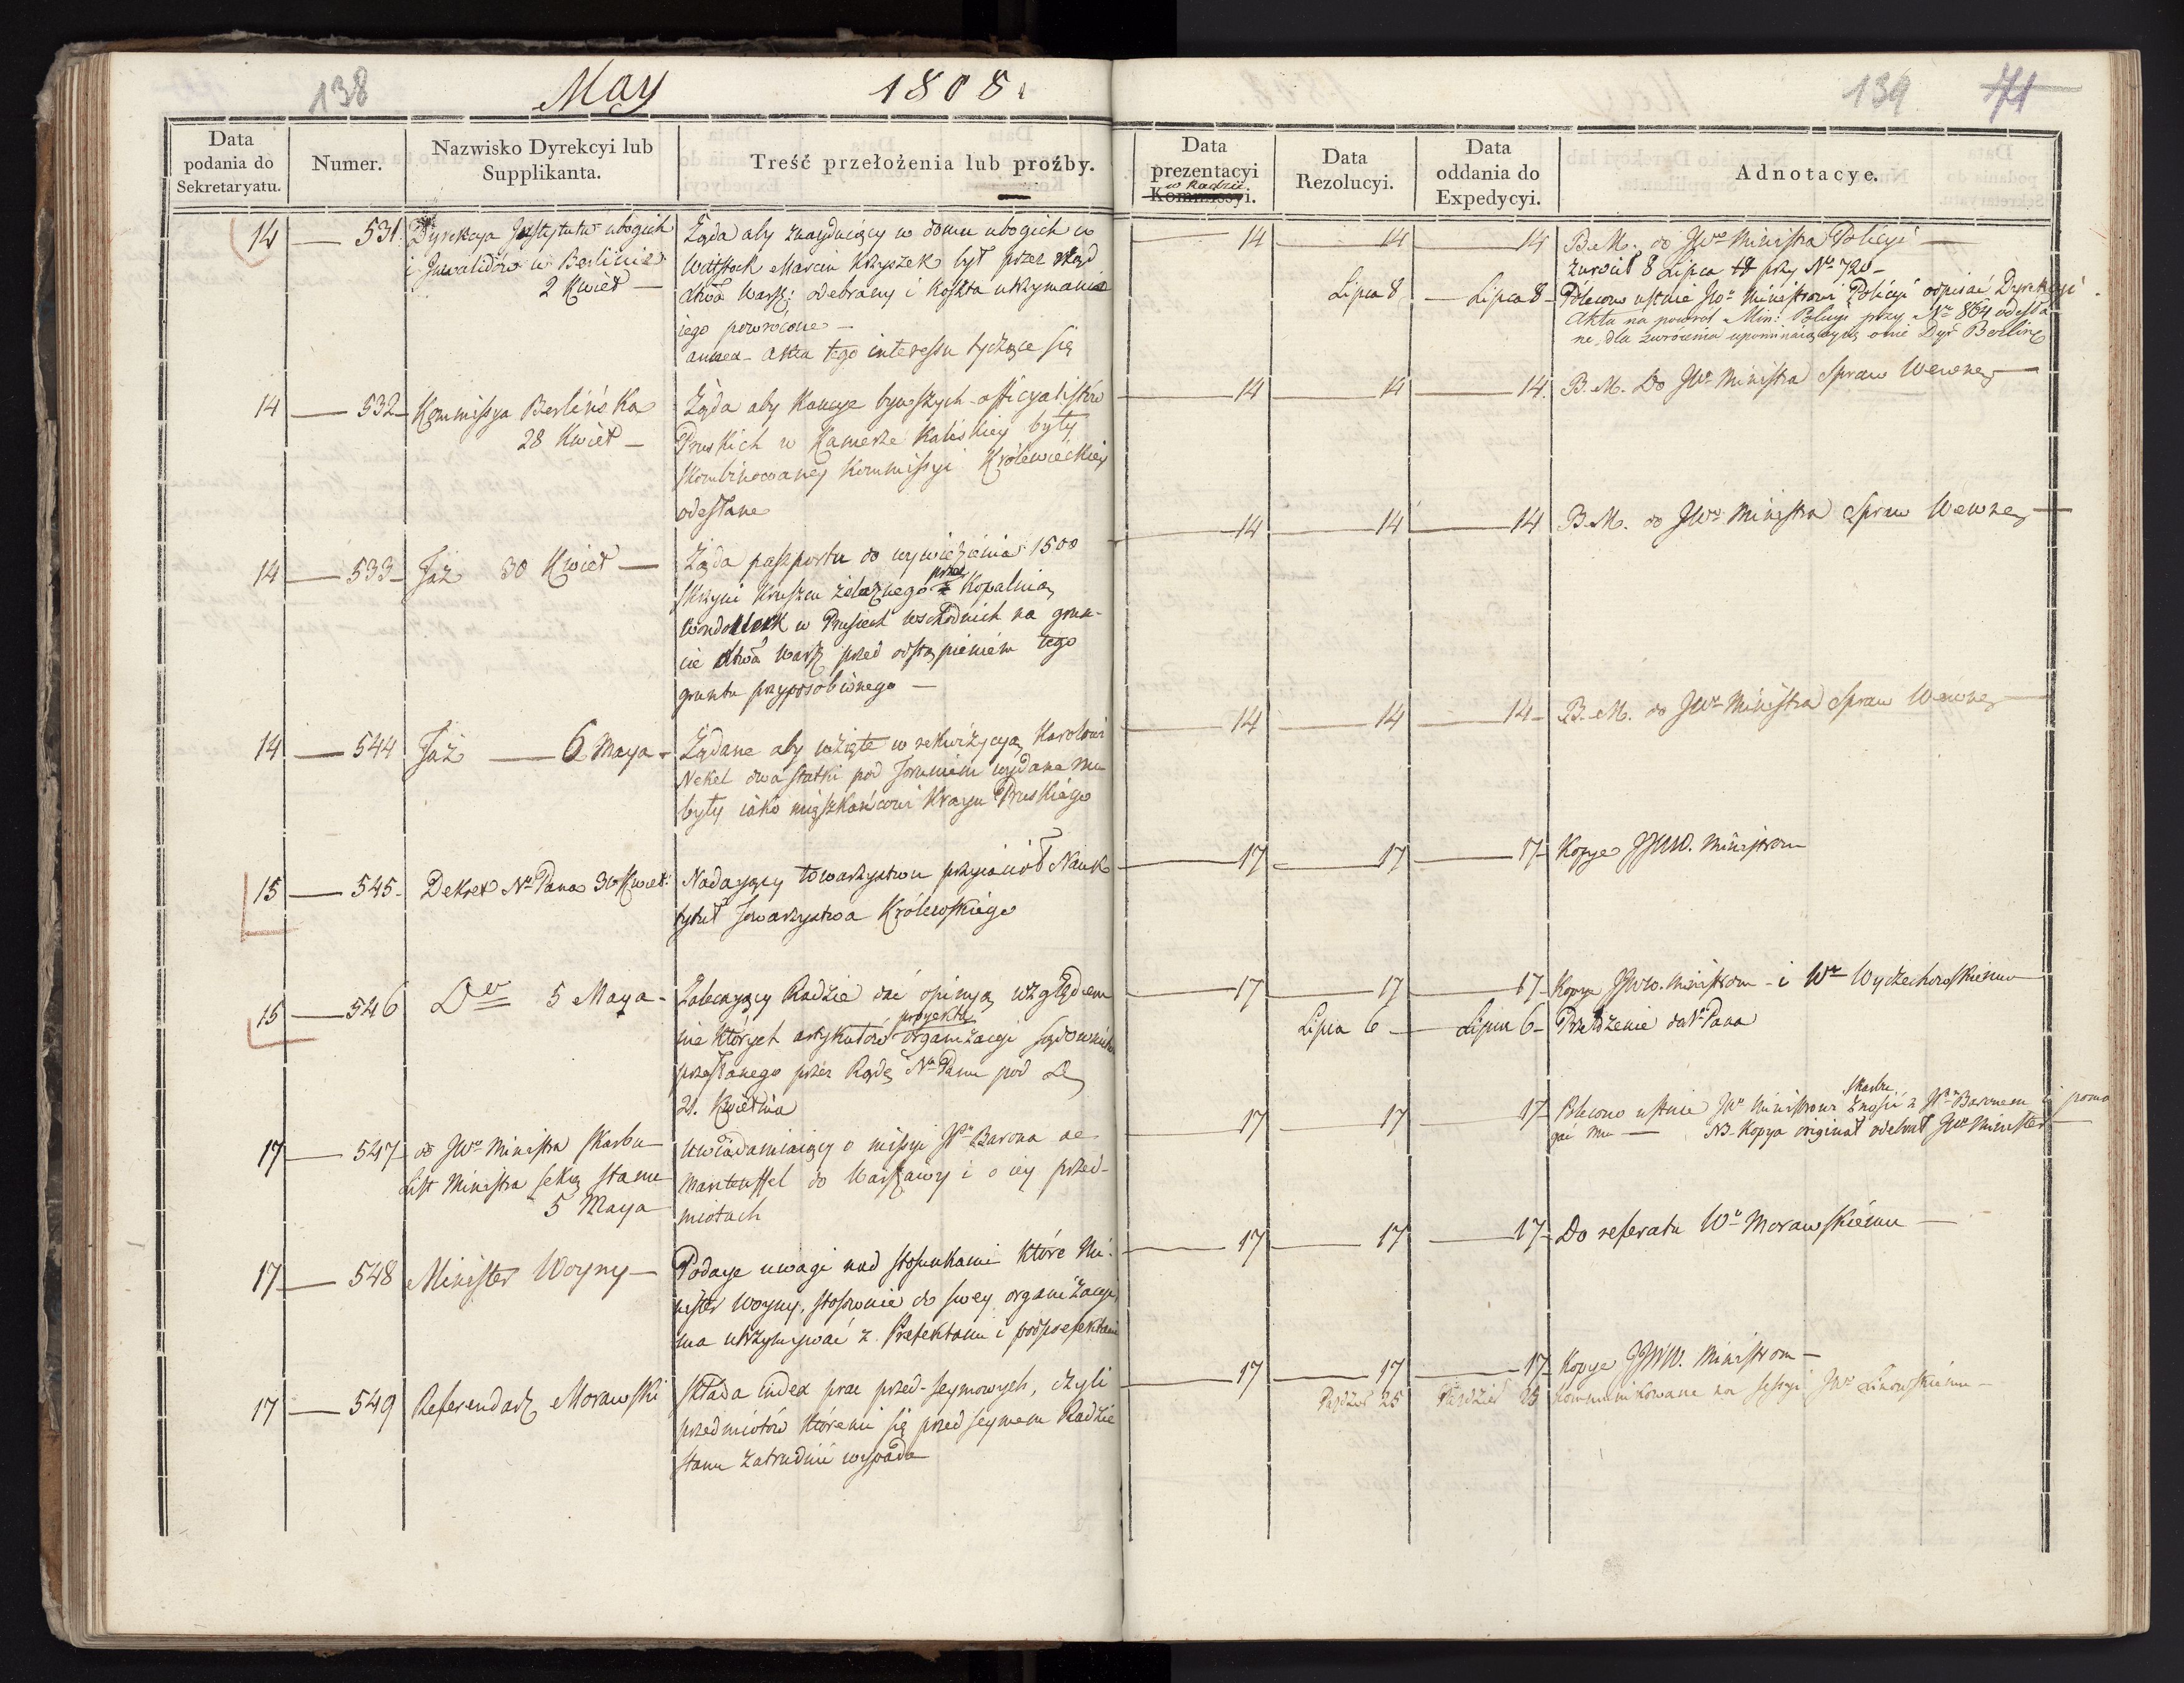 138
May 1808.
139 71
Data podania do Sekretaryatu.
Numer.
Nazwisko Dyrekcyi lub Supplikanta.
Treść przełożenia lub proźby.
Data prezentacyi w Radzie. Kommissyi.
Data Rezolucyi.
Data oddania do Expedycyi.
Adnotacye.
14 — 531. Dyrekcya Instytutu ubogich
i Inwalidów w Berlinie
2 Kwiet —
Żąda aby znayduiący w domu ubogich w
Wittstock Marcin Krzyszek był przez rząd
Xtwa Warsz: odebrany i koszta utrzymania
iego powrócone —
annex. akta tego interessu tyczące się
14 14 14 B.M. do JWo Ministra Policyi —
zwrócił 8 Lipca przy No 720 —
Lipca 8 — Lipca 8 — Polecono ustnie JWu Ministrowi Policyi odpisać Dyrekcyi
Akta na powrót Min: Policyi przy No 864 odesła
ne, dla zwrócenia upominaiącey się onie Dyr Berlinę
14 — 532 — Kommissya Berlińska
28 Kwiet —
Żąda aby kaucye bywszych officyalistów
Pruskich w Kamerze Kaliskiey były
kombinowaney Kommissyi Królewieckiey
odesłane
14 14 14. B.M. Do JWo Ministra Spraw Wewnę
14 — 533 — Taż 30 Kwiet —
Żąda paszportu do wywiezienia 1500
skrzyń kruszcu żelaznego przez kopalnią
Wondolleck w Prusiech wschodnich na grun-
cie Xtwa Warsz przed odstąpieniem tego
gruntu przysposobionego —
14 14 14 B.M. do JWo Ministra Spraw Wewnę
14 — 544 Taż — 6 Maya —
Żądane aby wzięte w rekwizycyą Karolowi
Nekel dwa statki pod Toruniem wydane mu
były iako mięszkańcowi kraiu Pruskiego
14 14 14 — B.M. do JWo Ministra Spraw Wewnę
15 — 545 — Dekret No Pana 30 Kwiet.
Nadaiący towarzystwu przyiaciół Nauk
tytuł Towarzystwa Królewskiego
17 17 17 — Kopye JJWW. Ministrom
15 — 546 Do 5 Maya —
Zalecaiący Radzie dać opinią względem
niektórych artykułów proyektu organizacyi sądownictw
przesłanego przez Radę No Panu pod D
21. Kwietnia
17 17 17 — Kopye JJWW. Ministrom — i Wu Wyczechowskiemu
Lipca 6 — Lipca 6 — Przełożenie do No Pana
17 — 547 — od JWo Ministra Skarbu
List Ministra Sekr Stanu
5 Maya
uwiadamiaiący o missyi JPa Barona de
Manteuffel do Warszawy i o iey przed-
miotach
17 17 17 — Polecono ustnie JWu Ministrowi Skarbu znosić z JPm Baronem i poma
gać mu — NB. Kopya originał odebrał JWo Minister
17 — 548 Minister Woyny —
Podaie uwagi nad stosunkami które Mi-
nister Woyny, stosownie do swey organizacyi
ma utrzymywać z Prefektami i podprefektami
17 17 17 — Do referatu Wu Morawskiemu —
17 — 549 Referendarz Morawski
Składa index prac przed-seymowych, czyli
przedmiotów któremi się przed seymem Radzie
stanu zatrudnić wypada
17 17 17 Kopye JJWW. Ministrom —
Paździer 25 Paździer 25 Kommunikowane na sessyi JWu Linowskiemu —